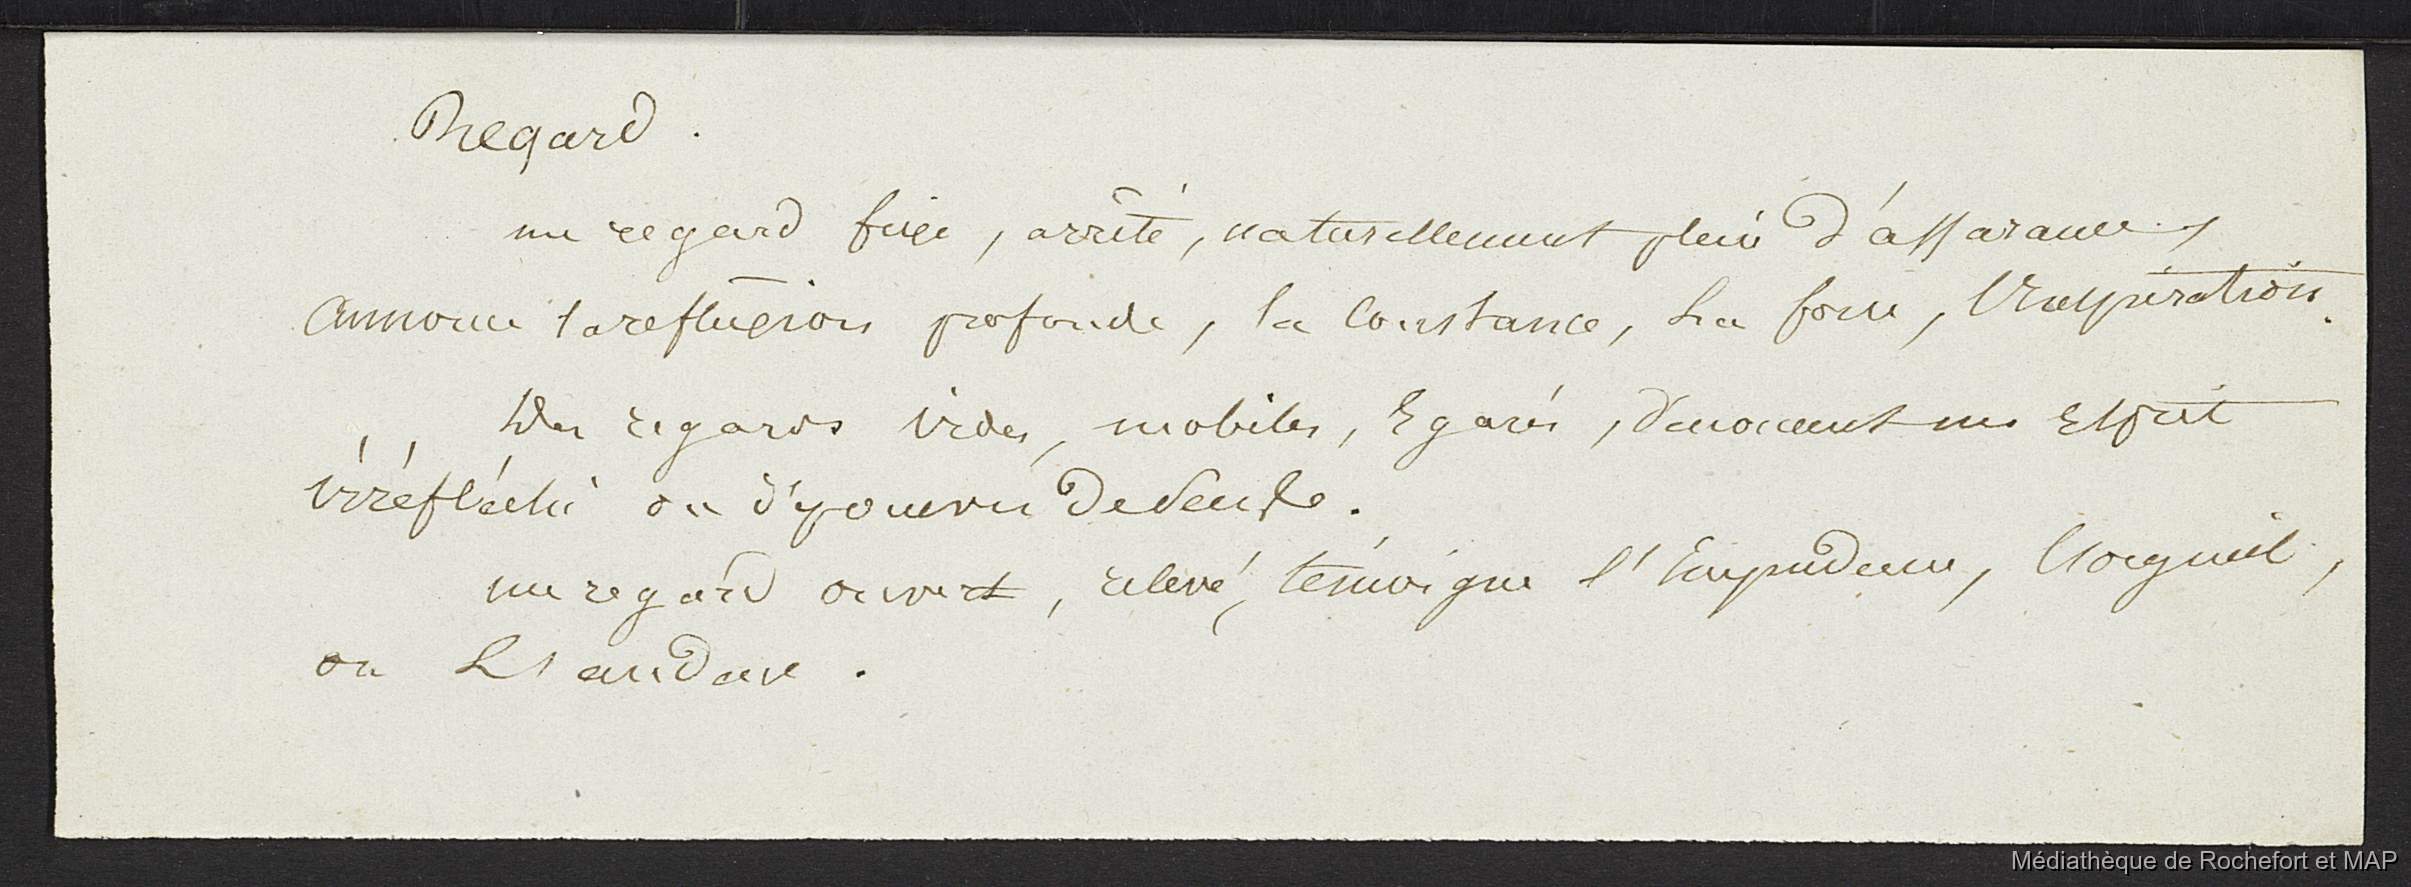 Regard.
un regard fixe, arrêté, naturellement plein d'assurance,
annonce la reflexion profonde, la Constance, La force, l'inspiration.
Des regards vides, mobiles, Egarés, dénoncent un Esprit
irréfléchi ou dépourvu De Sens.
un regard ouvert, relevé, témoigne l'Impudence, l'orgueil,
ou L'audace.
Médiathèque de Rochefort et MAP